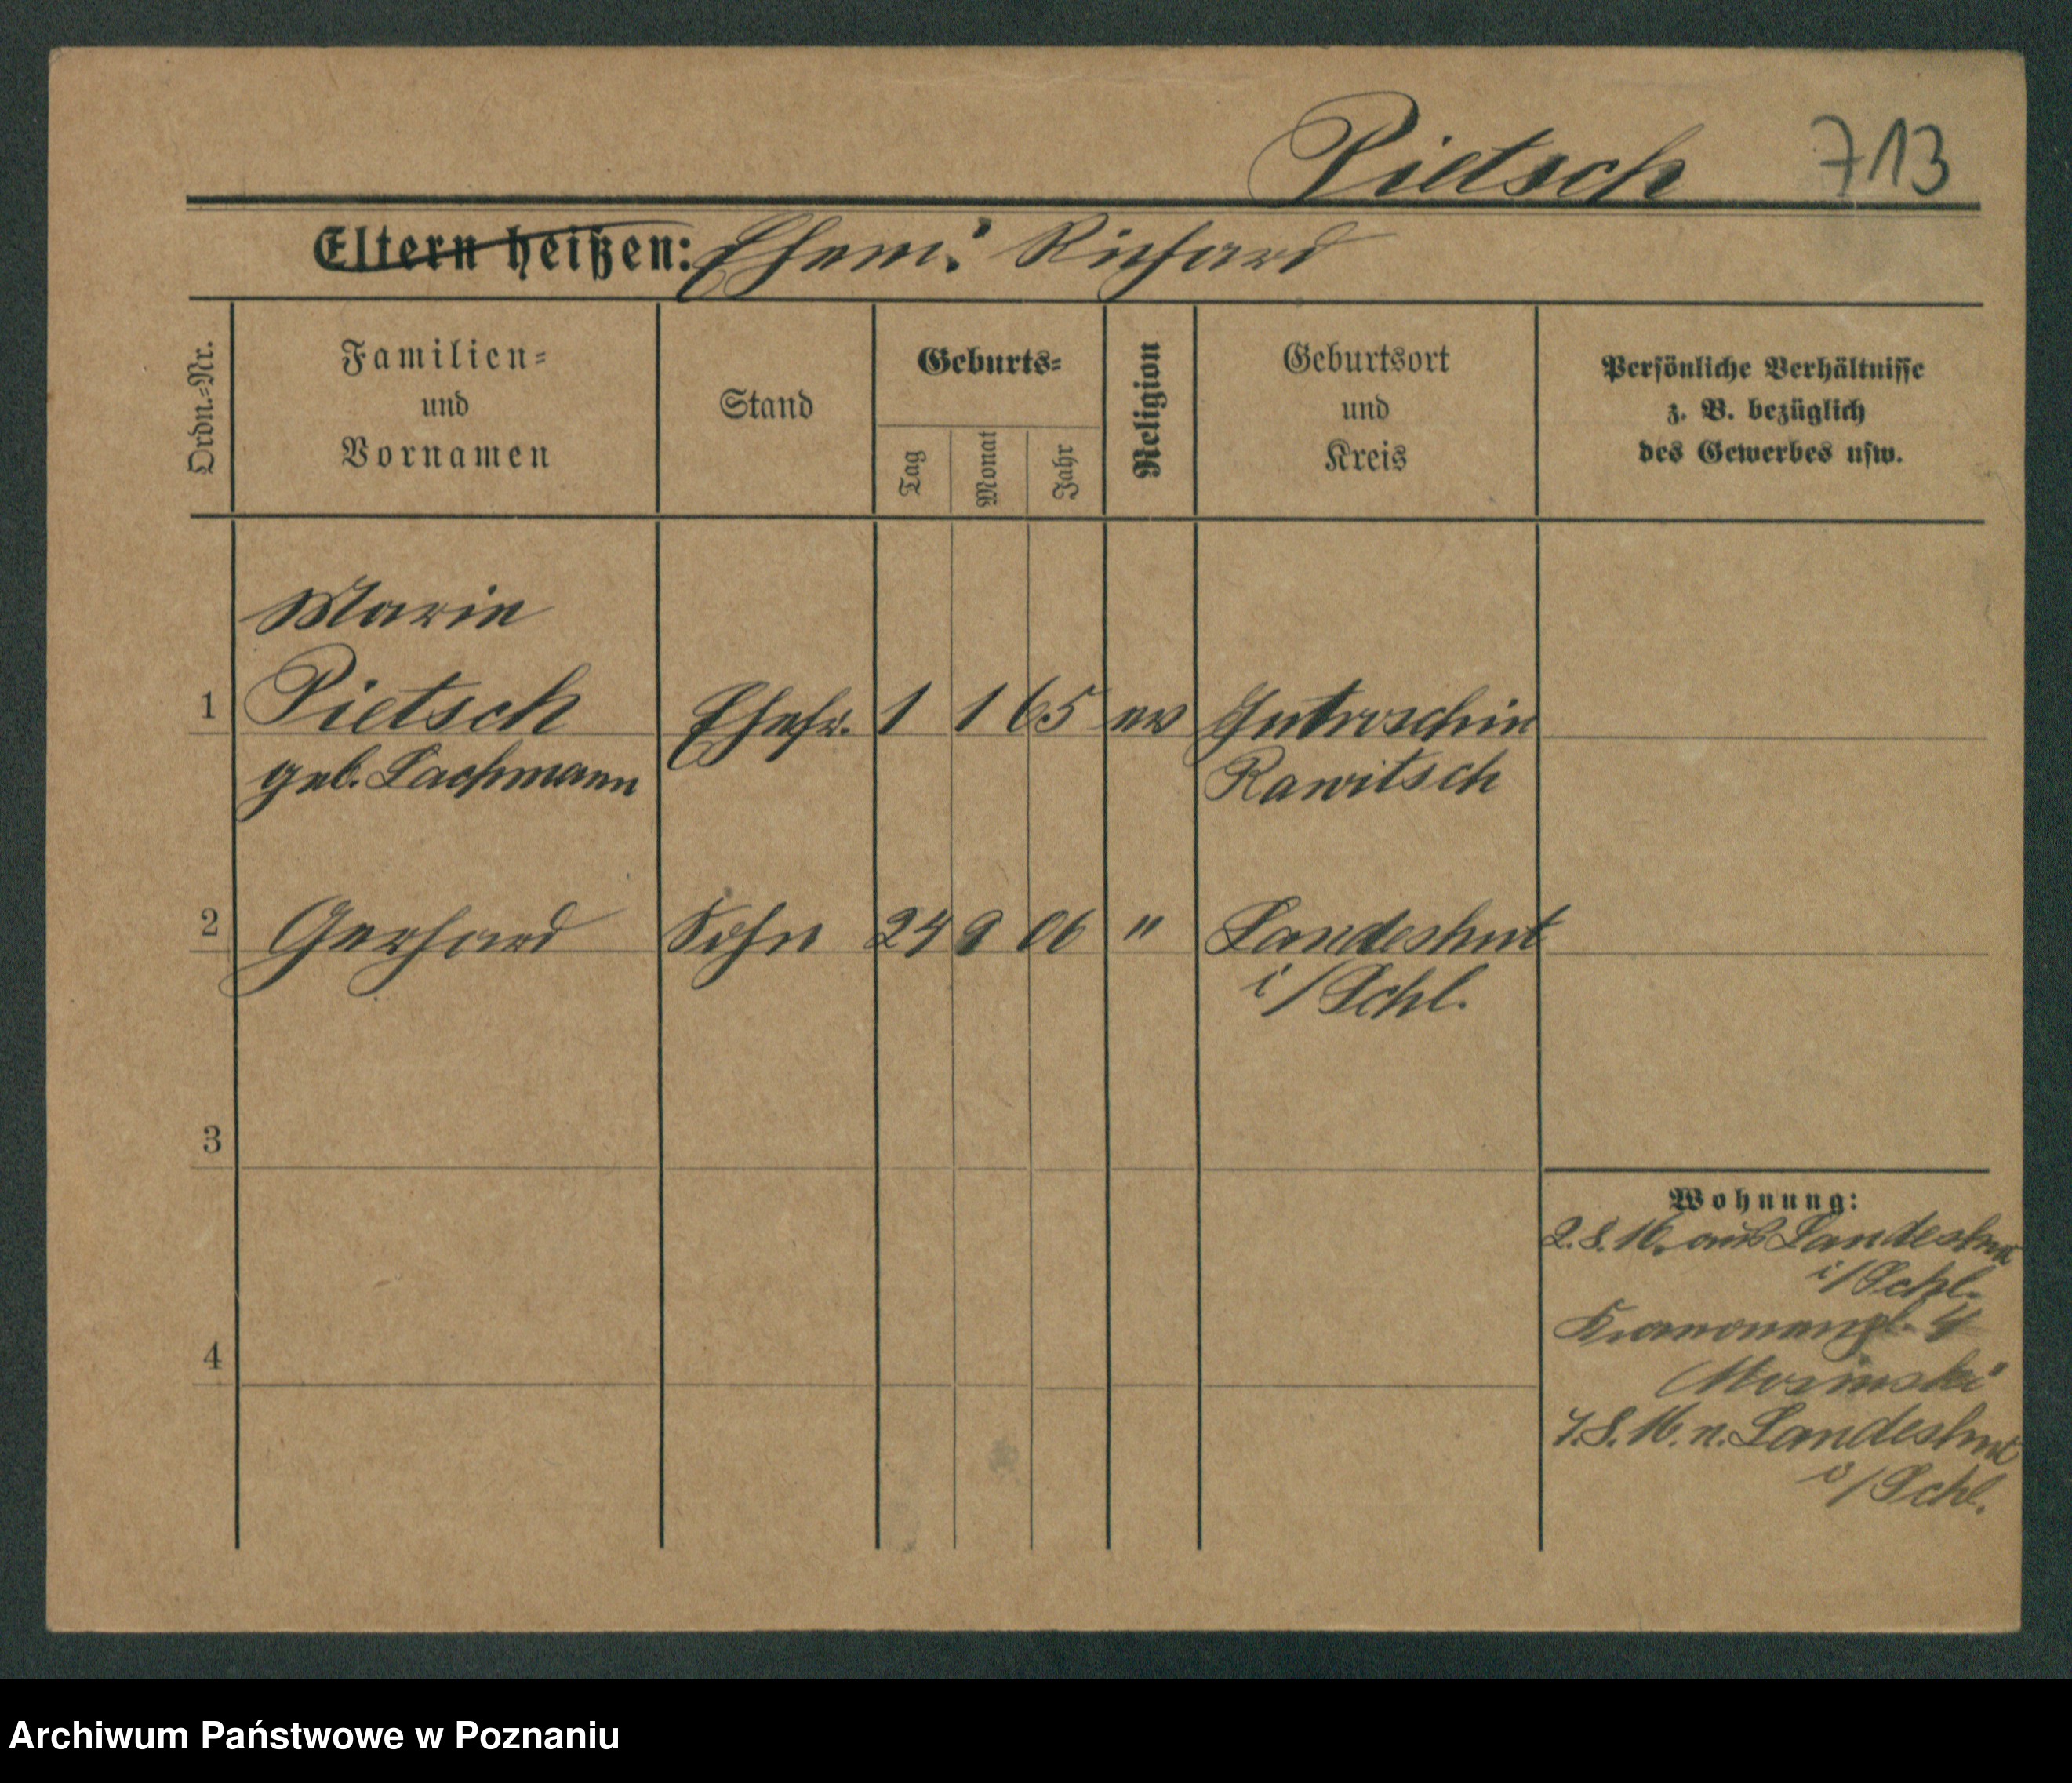 Pietsch 713
Eltern heißen: Ehem: Richard
Ordn.-Nr.
Familien-
und
Vornamen
Stand
Geburts-
Tag
Monat
Jahr
Religion
Geburtsort
und
Kreis
Persönliche Verhältnisse
z. B. bezüglich
des Gewerbes usw.
Marie
1 Pietsch Ehefr. 1 1 65 ev Jutroschin
geb. Lachmann Rawitsch
2 Gerhard Sohn 24 9 06 " Landeshut
i/Schl.
3
4
Wohnung:
2.8.16. aus Landeshut
i/Schl.
4
Mosinski
7.8.16. n. Landeshut
i/Schl.
Archiwum Państwowe w Poznaniu